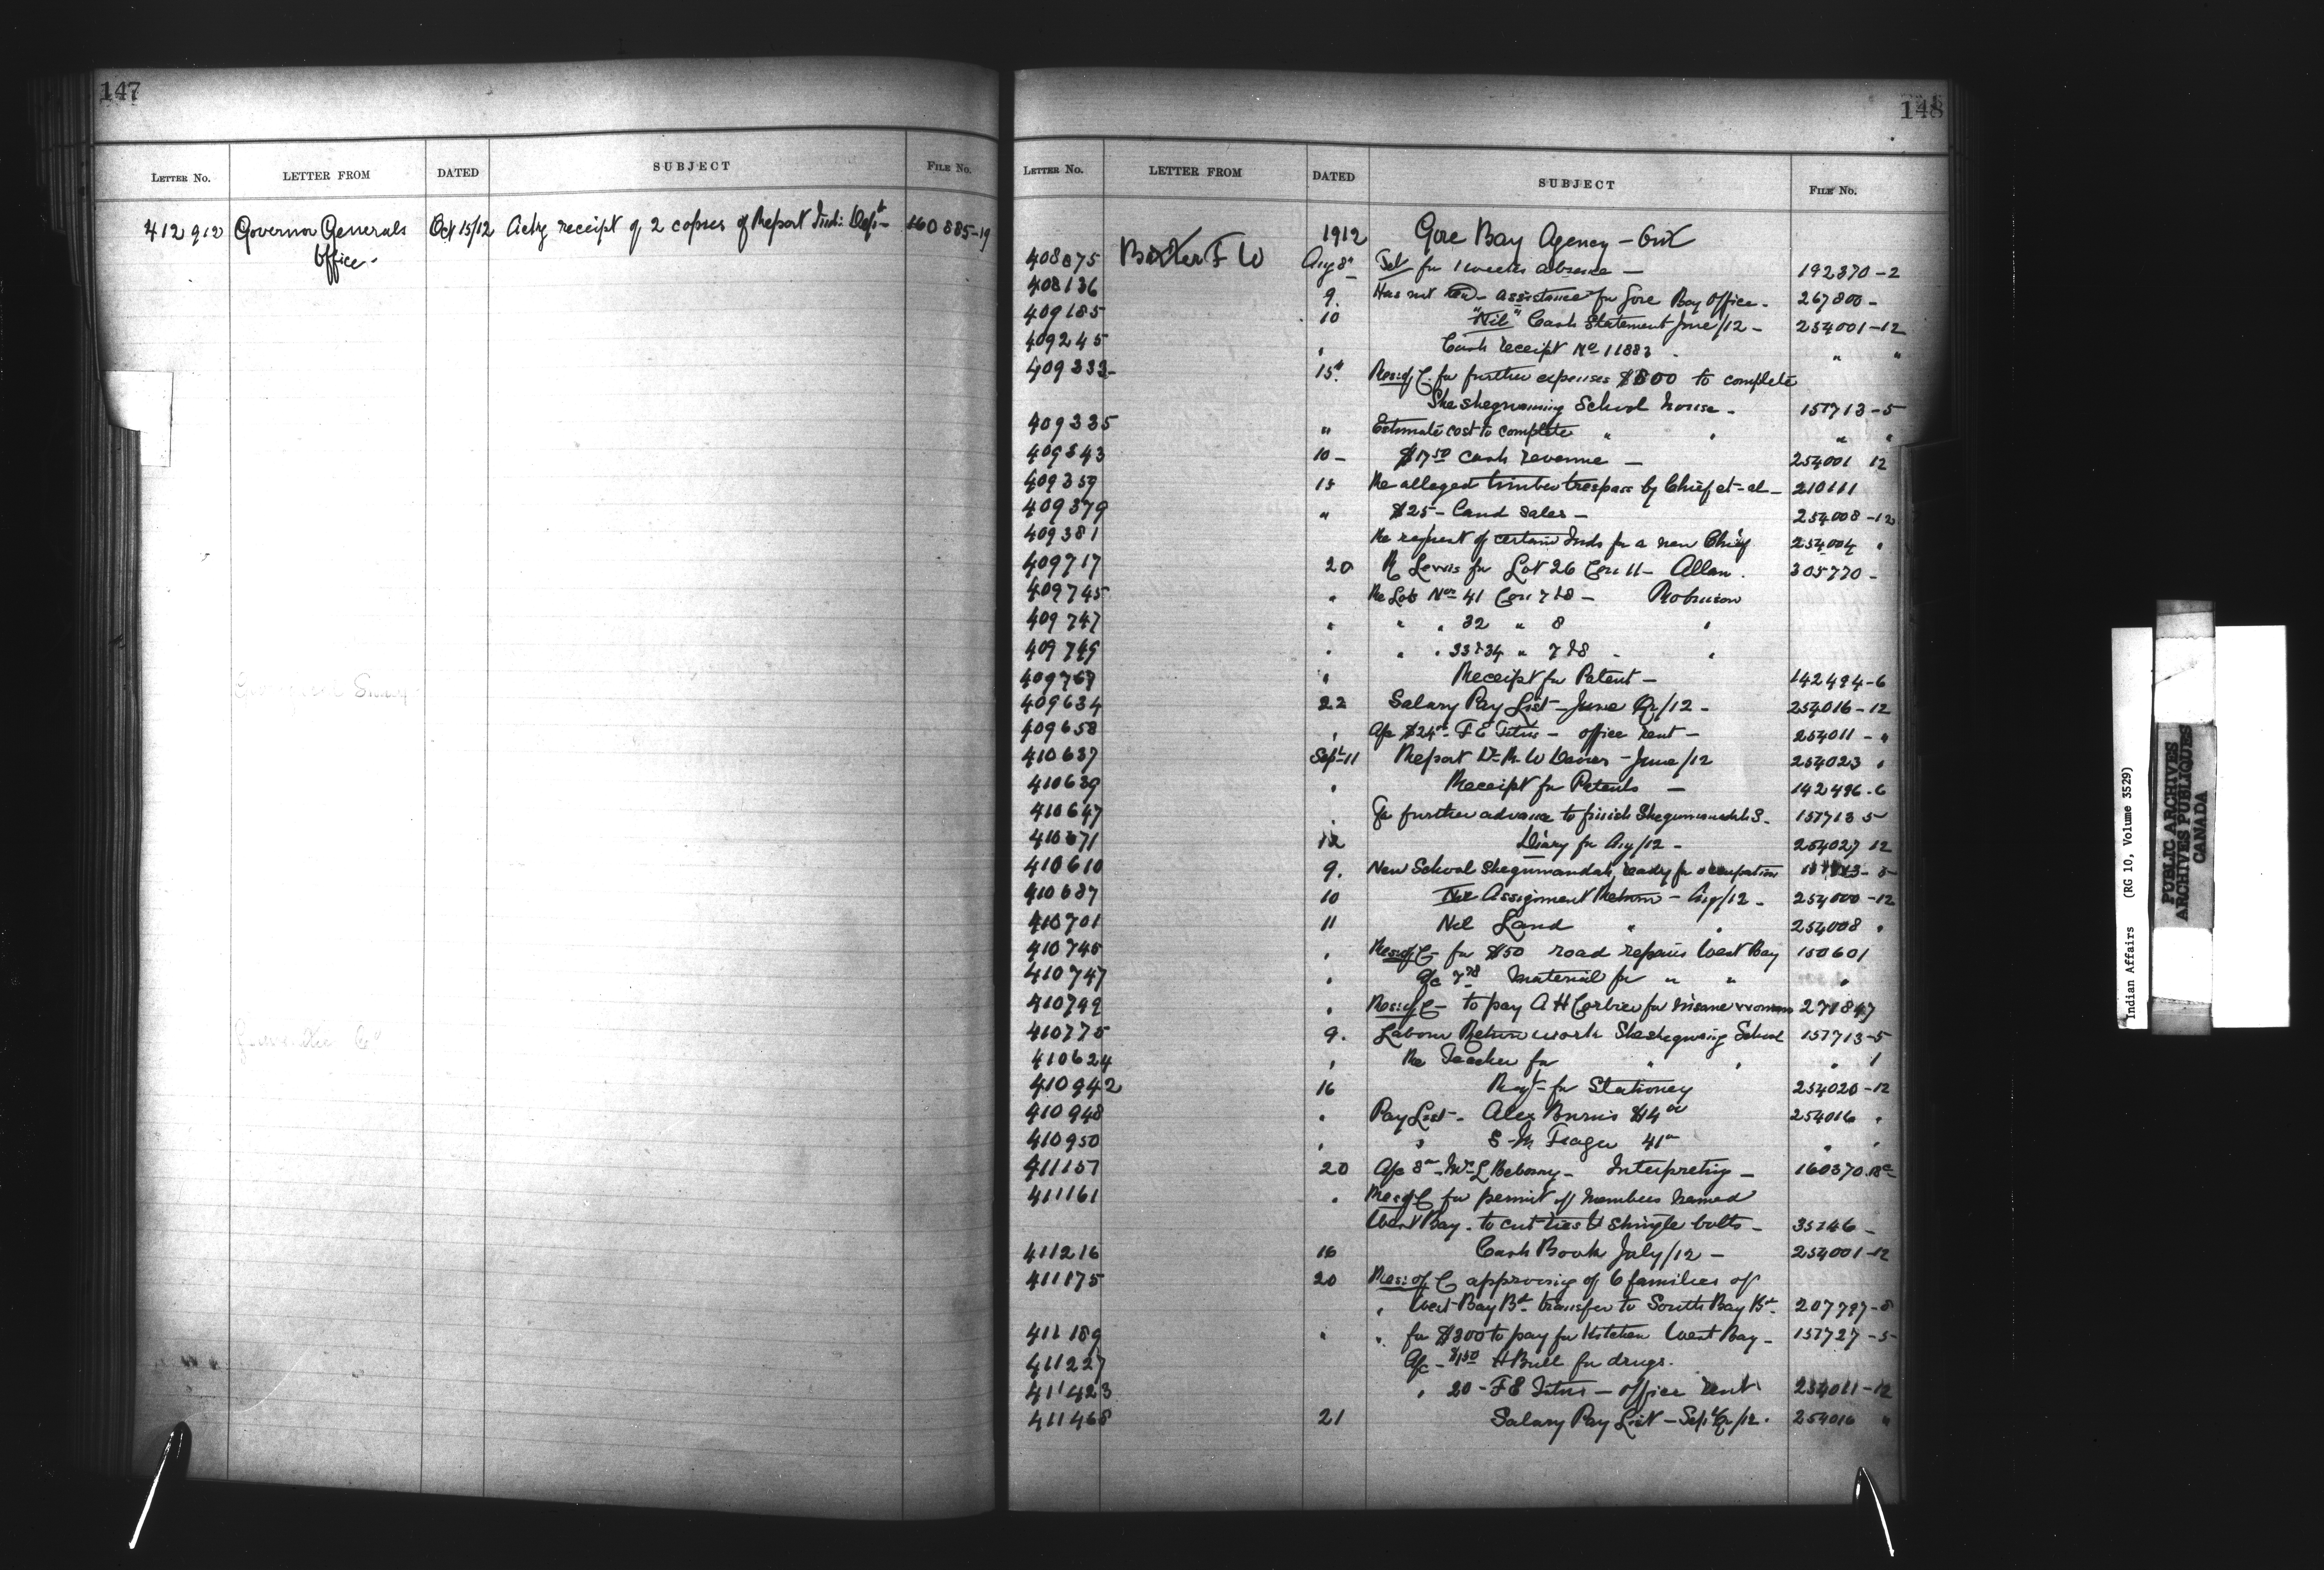 147
LETTER No. LETTER FROM DATED SUBJECT FILE No.
412912 Governor Generals Oct 15/12 Ackg receipt of 2 copies of Report Ind: Dept- 160885-19
Office-
148
LETTER No. LETTER FROM DATED SUBJECT FILE No.
1912 Gore Bay Agency - Ont
408075 Baxter F W Aug 8" Tel for 1 weeks absence - 192370-2
408136 9. Has not assistance for Gore Bay Office- 267800-
409185 10 "Nil" Cash Statement June/12- 254001-12
409245 " Cash receipt No 11883 " "
409333- 15" Res: of C. for further expenses $800 to complete
Sheshegwaning School house- 151713-5
409335 " Estimate cost to complete " " " "
409343 10- $17.50 cash revenue - 254001 12
409359 15 Re alleged timber trespass by Chief et-al- 210111
409379 " $25- Land Sales- 254008-12
409381 Re request of certain Inds for a new Chief 254004 "
409717 20 R Lewis for Lot 26 Con 11- Allan. 305770-
409745 " Re Lots Nos 41 Con 7&8- Robinson
409747 " " " 32 " 8 "
409749 " " " 33&34 " 7&8 "
409767 " Receipt for Patent- 142494-6
409634 22 Salary Pay List-June Qr/12- 254016-12
409658 " A/c $24- F E Titus- office rent- 254011-"
410637 Sept-11 Report Dr R W Davies-June/12 254023 "
410639 " Receipt for Patents - 142496-6
410647 " For further advance to finish Shegumandah S- 151713 5
410671 12 Diary for Aug/12- 254027 12
410610 9. New School Shegumandah, ready for occupation 151713-5
410687 10 Nil Assignment Return-Aug/12- 254000-12
410701 11 Nil Land " " 254008 "
410745 " Res: of C- for $50 road repairs West Bay 150601
410747 " A/c Material for " " "
410749 " Res: of C- to pay A H Corbiere for insane woman 271847
410775 9. Labour Return work Sheshegwaing School 151713-5
410624 " Re Teacher for " " " 1
410942 16 Reqt- for Stationery 254020-12
410948 " Pay List- Alex Burns $14 00 254016 "
410950 " " S M Frager 41 " "
411157 20 A/c 8- Mrs L Bebonny- Interpreting- 160370
411161 " Res: of C for permit of members named
West Bay. to cut ties & shingle bolts- 35146-
411216 16 Cash Book July/12- 254001-12
411175 20 Res: of C approving of 6 families of
" West Bay Bd- transfer to South Bay Bd- 207797-8
411189 " " for $300 to pay for Kitchen West Bay- 151727-5
411227 A/c- $1.50 H Bull for drugs.
411423 " 20- F E Titus-office rent 254011-12
411468 21 Salary Pay List-Sept Qr/12. 254016 "
Indian Affairs (RG 10, Volume 3529)
PUBLIC ARCHIVES
ARCHIVES PUBLIQUES
CANADA